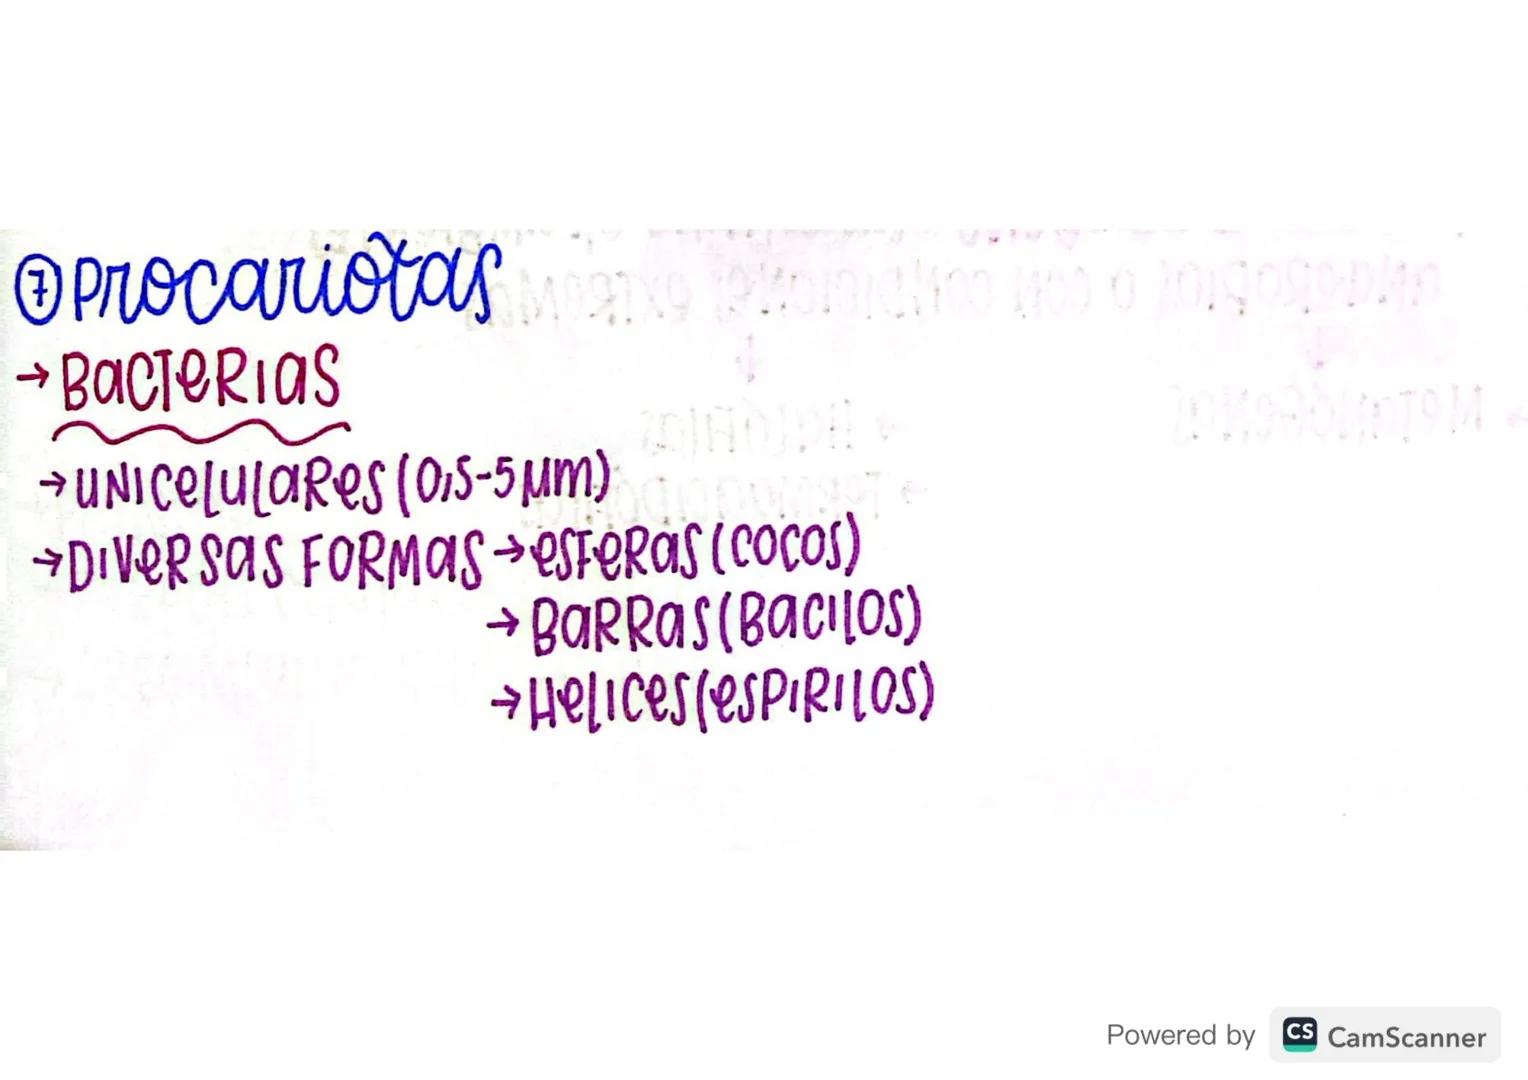 ⑦ Procariotas
→ Bacterias
→ UNICELULARES (0,5-5 µm)
→ DIVERSAS FORMAS → ESFERAS (COCOS)
→ BARRAS (BACILOS)
→ HELICES (ESPIRILOS)
Powered by CS CamScanner